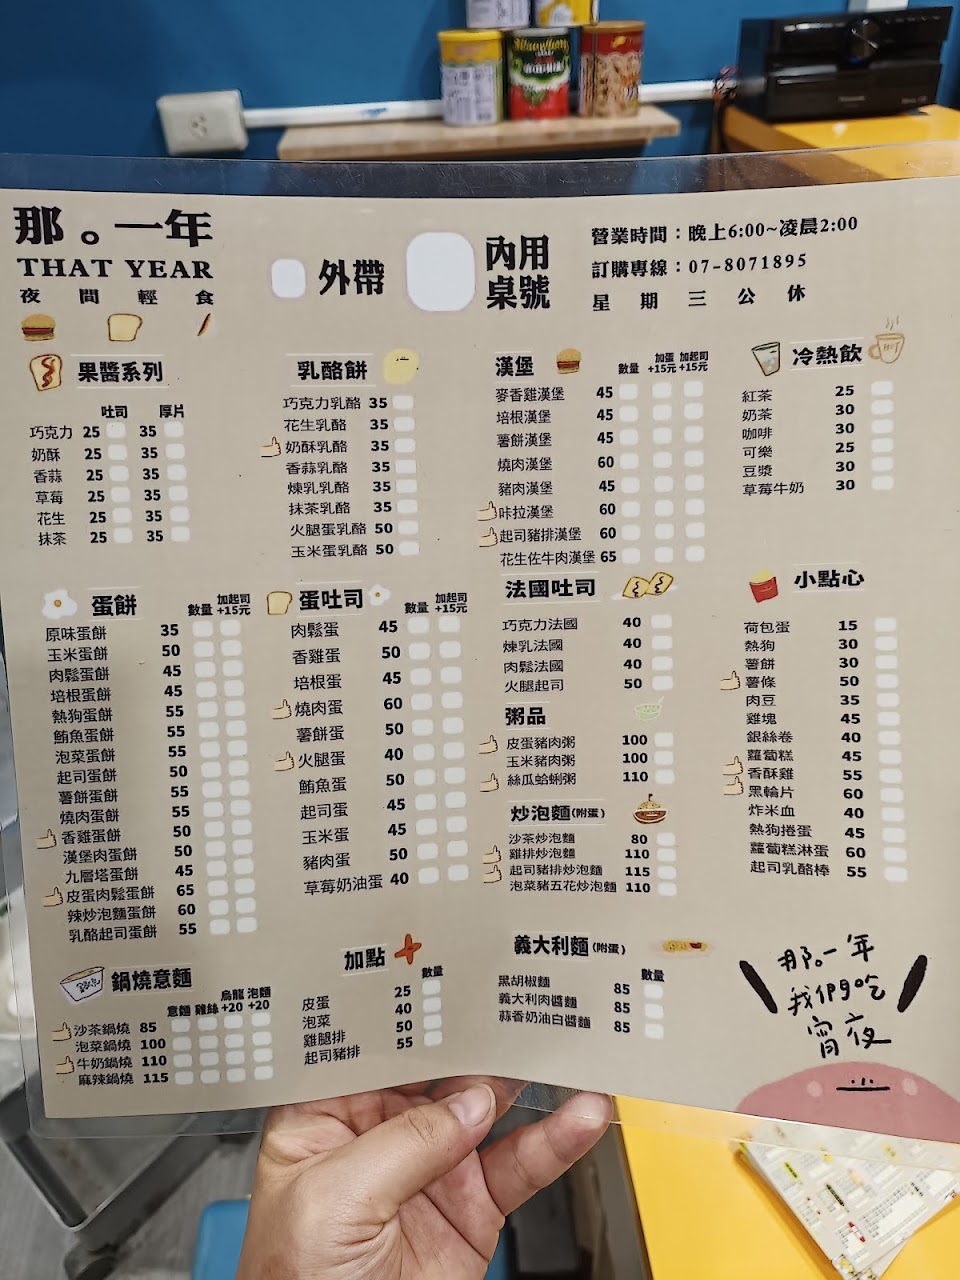 那。一年
THAT YEAR
夜間輕食
外帶
內用
桌號
營業時間：晚上6:00~凌晨2:00
訂購專線：07-8071895
星期三公休
果醬系列
吐司 厚片
巧克力 25 35
奶酥 25 35
香蒜 25 35
草莓 25 35
花生 25 35
抹茶 25 35
乳酪餅
巧克力乳酪 35
花生乳酪 35
奶酥乳酪 35
香蒜乳酪 35
煉乳乳酪 35
抹茶乳酪 35
火腿蛋乳酪 50
玉米蛋乳酪 50
漢堡 數量 加蛋+15元 加起司+15元
麥香雞漢堡 45
培根漢堡 45
薯餅漢堡 45
燒肉漢堡 60
豬肉漢堡 45
咔拉漢堡 60
起司豬排漢堡 60
花生佐牛肉漢堡 65
冷熱飲
HOT
紅茶 25
奶茶 30
咖啡 30
可樂 25
豆漿 30
草莓牛奶 30
蛋餅 數量 加起司+15元
原味蛋餅 35
玉米蛋餅 50
肉鬆蛋餅 45
培根蛋餅 45
熱狗蛋餅 55
鮪魚蛋餅 55
泡菜蛋餅 55
起司蛋餅 50
薯餅蛋餅 55
燒肉蛋餅 55
香雞蛋餅 50
漢堡肉蛋餅 50
九層塔蛋餅 45
皮蛋肉鬆蛋餅 65
辣炒泡麵蛋餅 60
乳酪起司蛋餅 55
蛋吐司 數量 加起司+15元
肉鬆蛋 45
香雞蛋 50
培根蛋 45
燒肉蛋 60
薯餅蛋 50
火腿蛋 40
鮪魚蛋 50
起司蛋 45
玉米蛋 45
豬肉蛋 50
草莓奶油蛋 40
法國吐司
巧克力法國 40
煉乳法國 40
肉鬆法國 40
火腿起司 50
粥品
皮蛋豬肉粥 100
玉米豬肉粥 100
絲瓜蛤蜊粥 110
炒泡麵(附蛋)
沙茶炒泡麵 80
雞排炒泡麵 110
起司豬排炒泡麵 115
泡菜豬五花炒泡麵 110
小點心
荷包蛋 15
熱狗 30
薯餅 30
薯條 50
肉豆 35
雞塊 45
銀絲卷 40
蘿蔔糕 45
香酥雞 55
黑輪片 60
炸米血 40
熱狗捲蛋 45
蘿蔔糕淋蛋 60
起司乳酪棒 55
鍋燒意麵
意麵 雞絲 烏龍+20 泡麵+20
沙茶鍋燒 85
泡菜鍋燒 100
牛奶鍋燒 110
麻辣鍋燒 115
加點
數量
皮蛋 25
泡菜 40
雞腿排 50
起司豬排 55
義大利麵(附蛋)
數量
黑胡椒麵 85
義大利肉醬麵 85
蒜香奶油白醬麵 85
那。一年
我們吃
宵夜